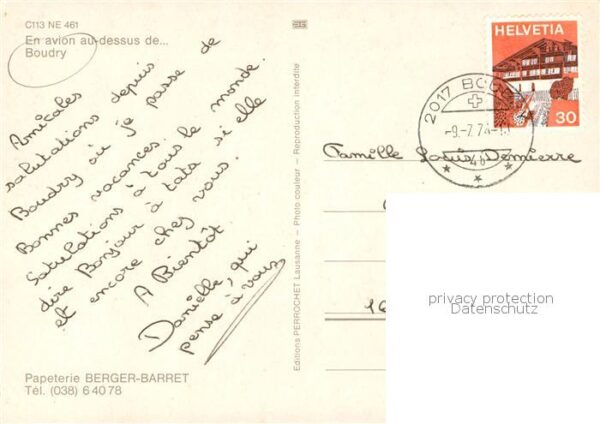 C113 NE 461
En avion au-dessus de...
Boudry
Amicales
salutations depuis
Boudry où je passe de
Bonnes vacances.
Salutations à tous le monde.
dire Bonjour à tata si elle
et encore chez vous.
A Bientôt
Danielle, qui
pense à vous
Papeterie BERGER-BARRET
Tél. (038) 6 40 78
Editions PERROCHET Lausanne – Photo couleur – Reproduction interdite
HELVETIA
30
2017
-9.-7.7
Famille Louis Demierre
16
privacy protection
Datenschutz